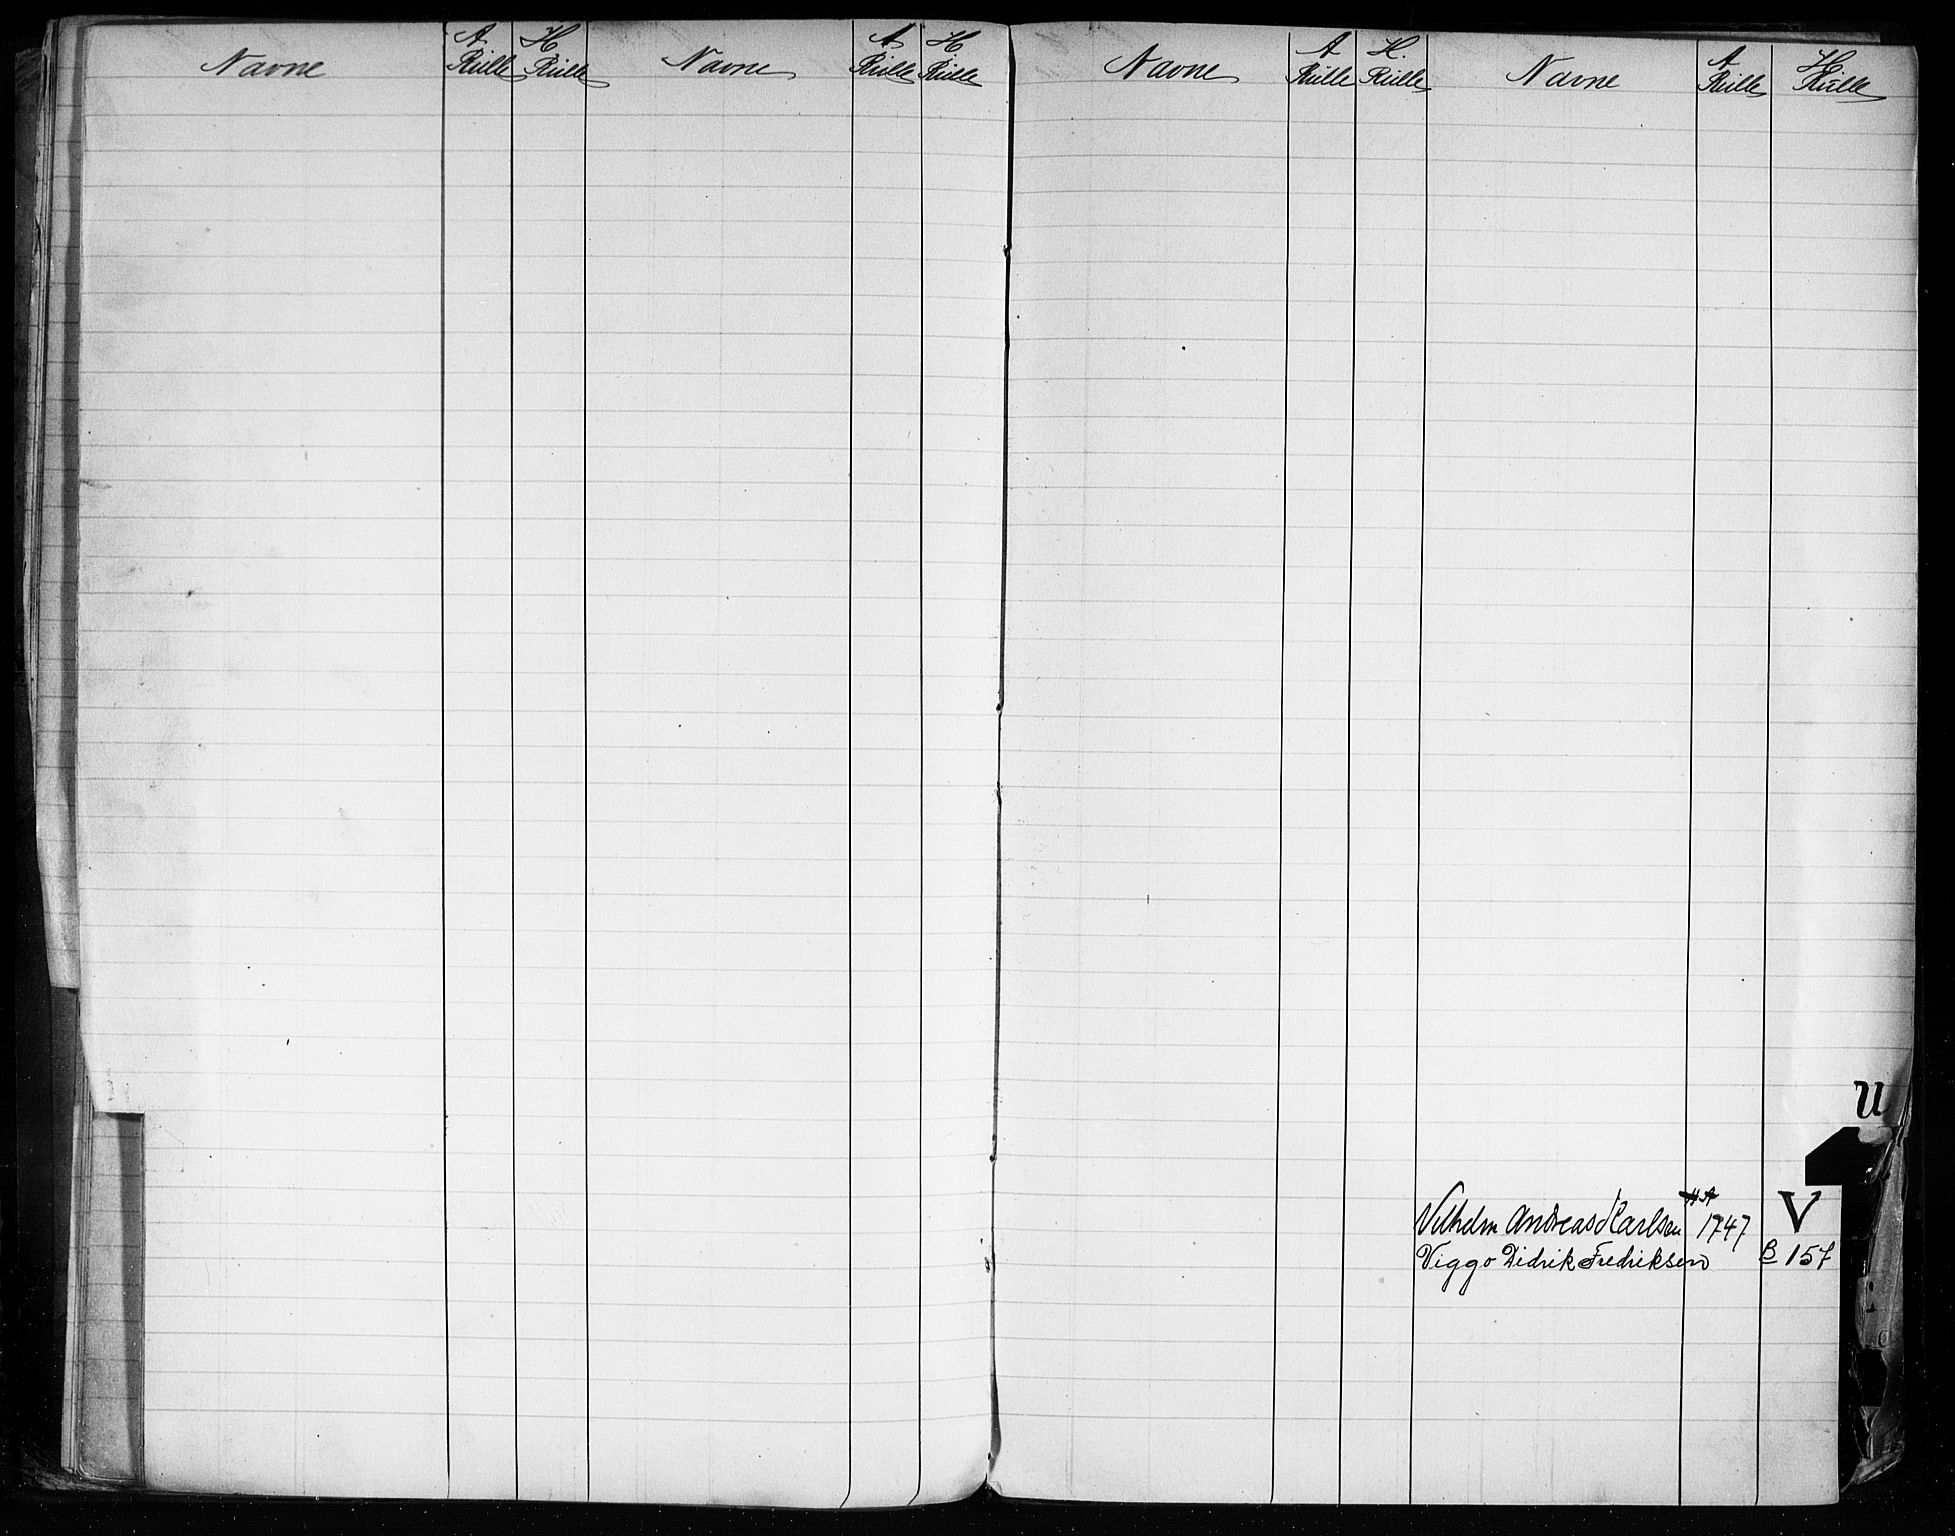 Navne A Rulle H Rulle Navne A Rulle H Rulle Navne A Rulle H. Rulle Navne A Rulle H Rulle
U
V
Vilhelm Andreas Karlsen 1747
Viggo Didrik Fredriksen B 157